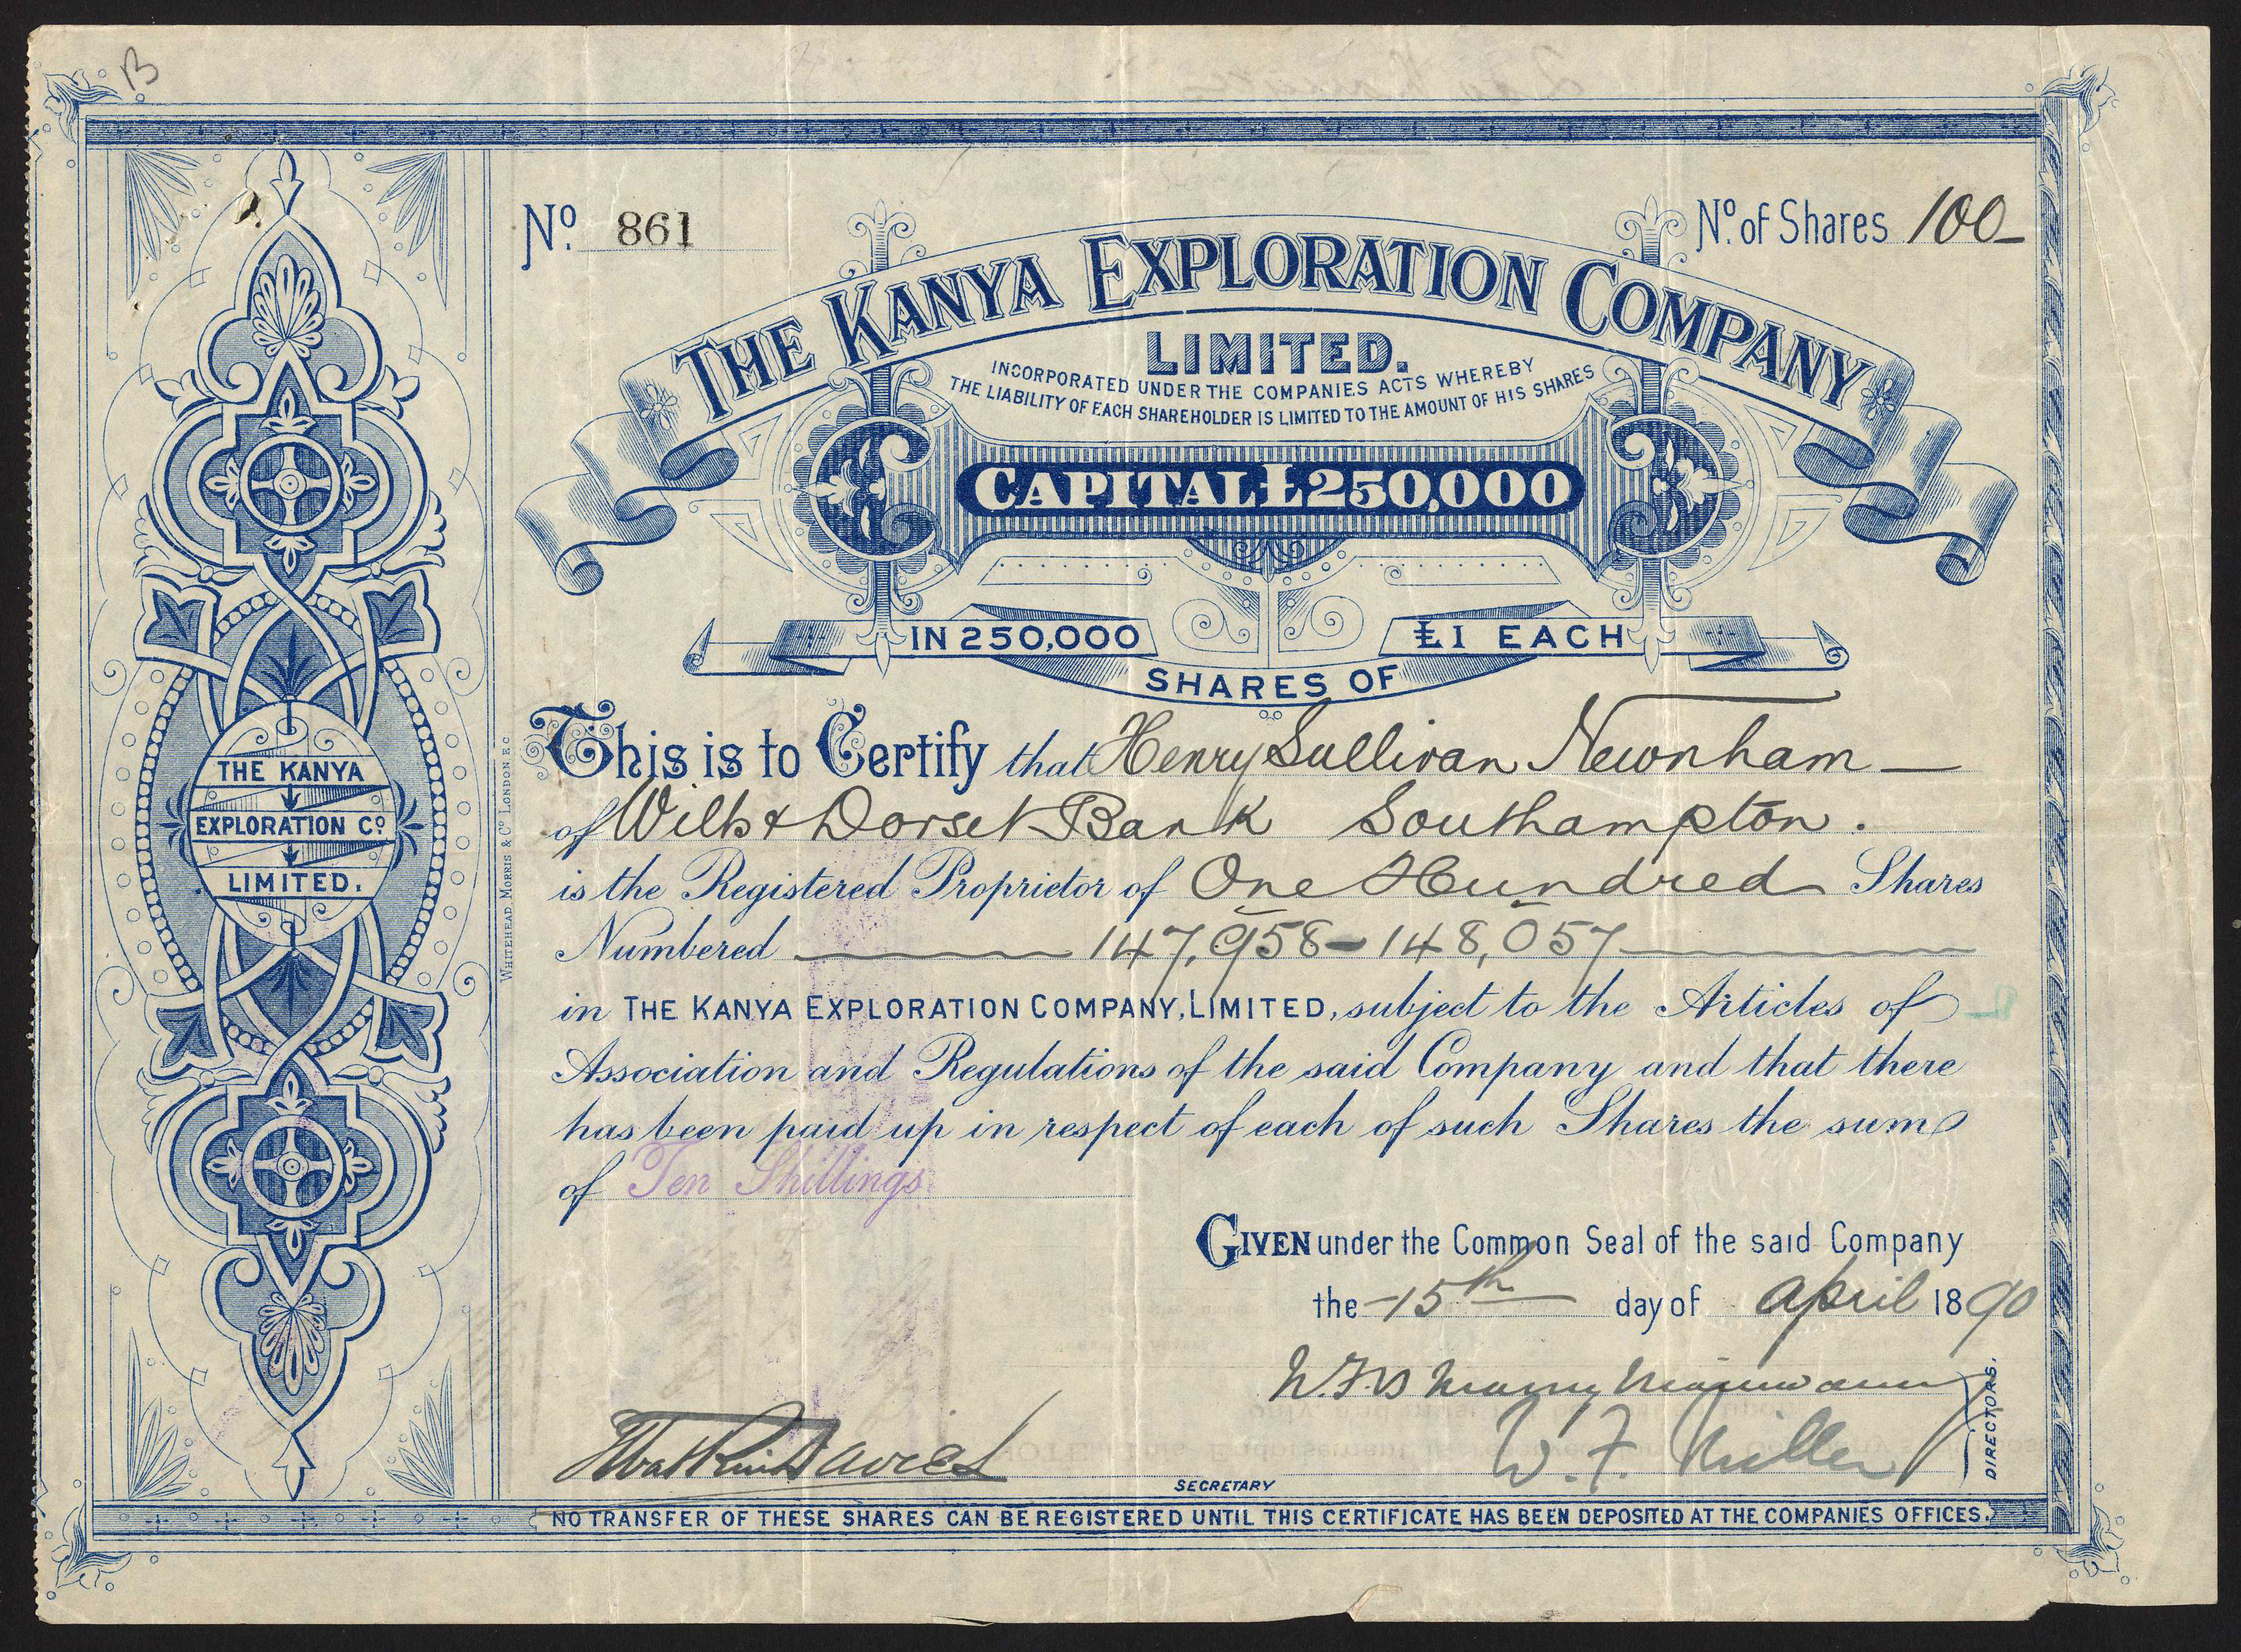 B
Nº. 861
Nº. of Shares 100
THE KANYA EXPLORATION COMPANY
LIMITED.
INCORPORATED UNDER THE COMPANIES ACTS WHEREBY
THE LIABILITY OF EACH SHAREHOLDER IS LIMITED TO THE AMOUNT OF HIS SHARES
CAPITAL £250,000
IN 250,000
SHARES OF
£1 EACH
This is to Certify that Henry Sullivan Newnham
of Wilts & Dorset Bank Southampton.
is the Registered Proprietor of One Hundred Shares
Numbered 147,958-148,057
in THE KANYA EXPLORATION COMPANY, LIMITED, subject to the Articles of
Association and Regulations of the said Company and that there
has been paid up in respect of each of such Shares the sum
of Ten Shillings
GIVEN under the Common Seal of the said Company
the 15th day of April 1890
W. F. Miller
DIRECTORS.
Davies
SECRETARY
NO TRANSFER OF THESE SHARES CAN BE REGISTERED UNTIL THIS CERTIFICATE HAS BEEN DEPOSITED AT THE COMPANIES OFFICES.
THE KANYA
EXPLORATION Cº
LIMITED.
WHITEHEAD MORRIS & Cº LONDON E C